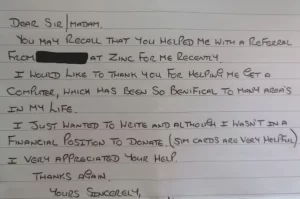 DEAR SIR/MADAM,
YOU MAY RECALL THAT YOU HELPED ME WITH A REFERRAL
FROM AT ZINC FOR ME RECENTLY.
I WOULD LIKE TO THANK YOU FOR HELPING ME GET A
COMPUTER, WHICH HAS BEEN SO BENIFICAL TO MANY AREA'S
IN MY LIFE.
I JUST WANTED TO WRITE AND ALTHOUGH I WASN'T IN A
FINANCIAL POSITION TO DONATE. (SIM CARDS ARE VERY HELPFUL)
I VERY APPRECIATED YOUR HELP.
THANKS AGAIN.
YOURS SINCERELY,